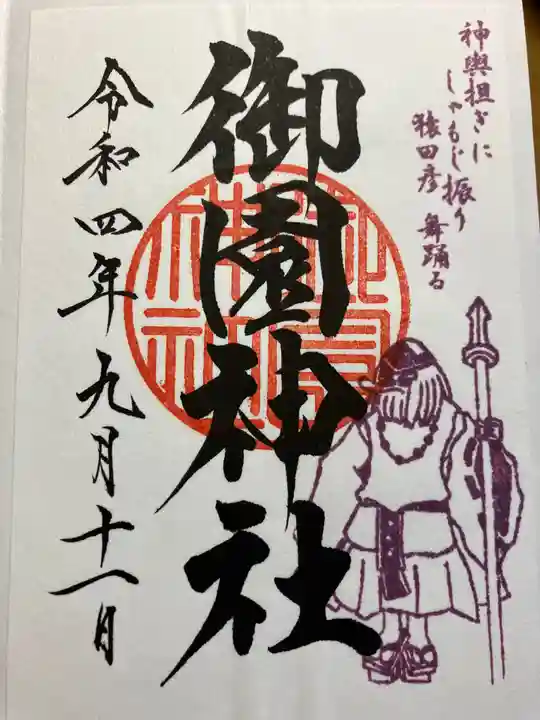 神輿担ぎに
しゃもじ振り
猿田彦 舞踊る
御園神社
令和四年九月十一日